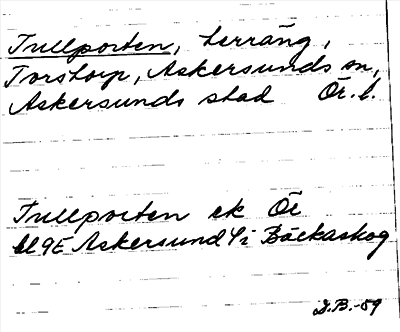 Tullporten, terräng,
Torstorp, Askersunds sn,
Askersunds stad Ör. l.
Tullporten ek Ör
9E Askersund 4i Bäckaskog
D.B.-59